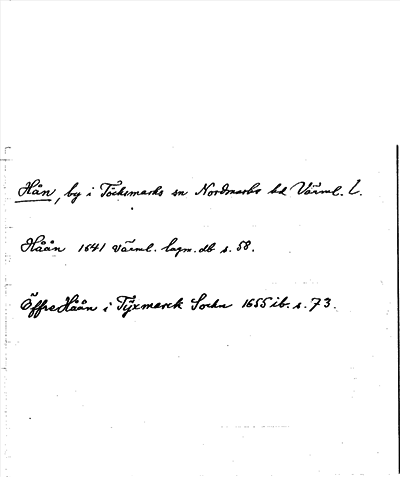 Hån, by i Töcksmarks sn Nordmarks hd Värml. L.
Håån 1641 Värml. lagm. db s. 58.
Öffre Håån i Tÿxmarck Sochn 1655 ib. s. 73.